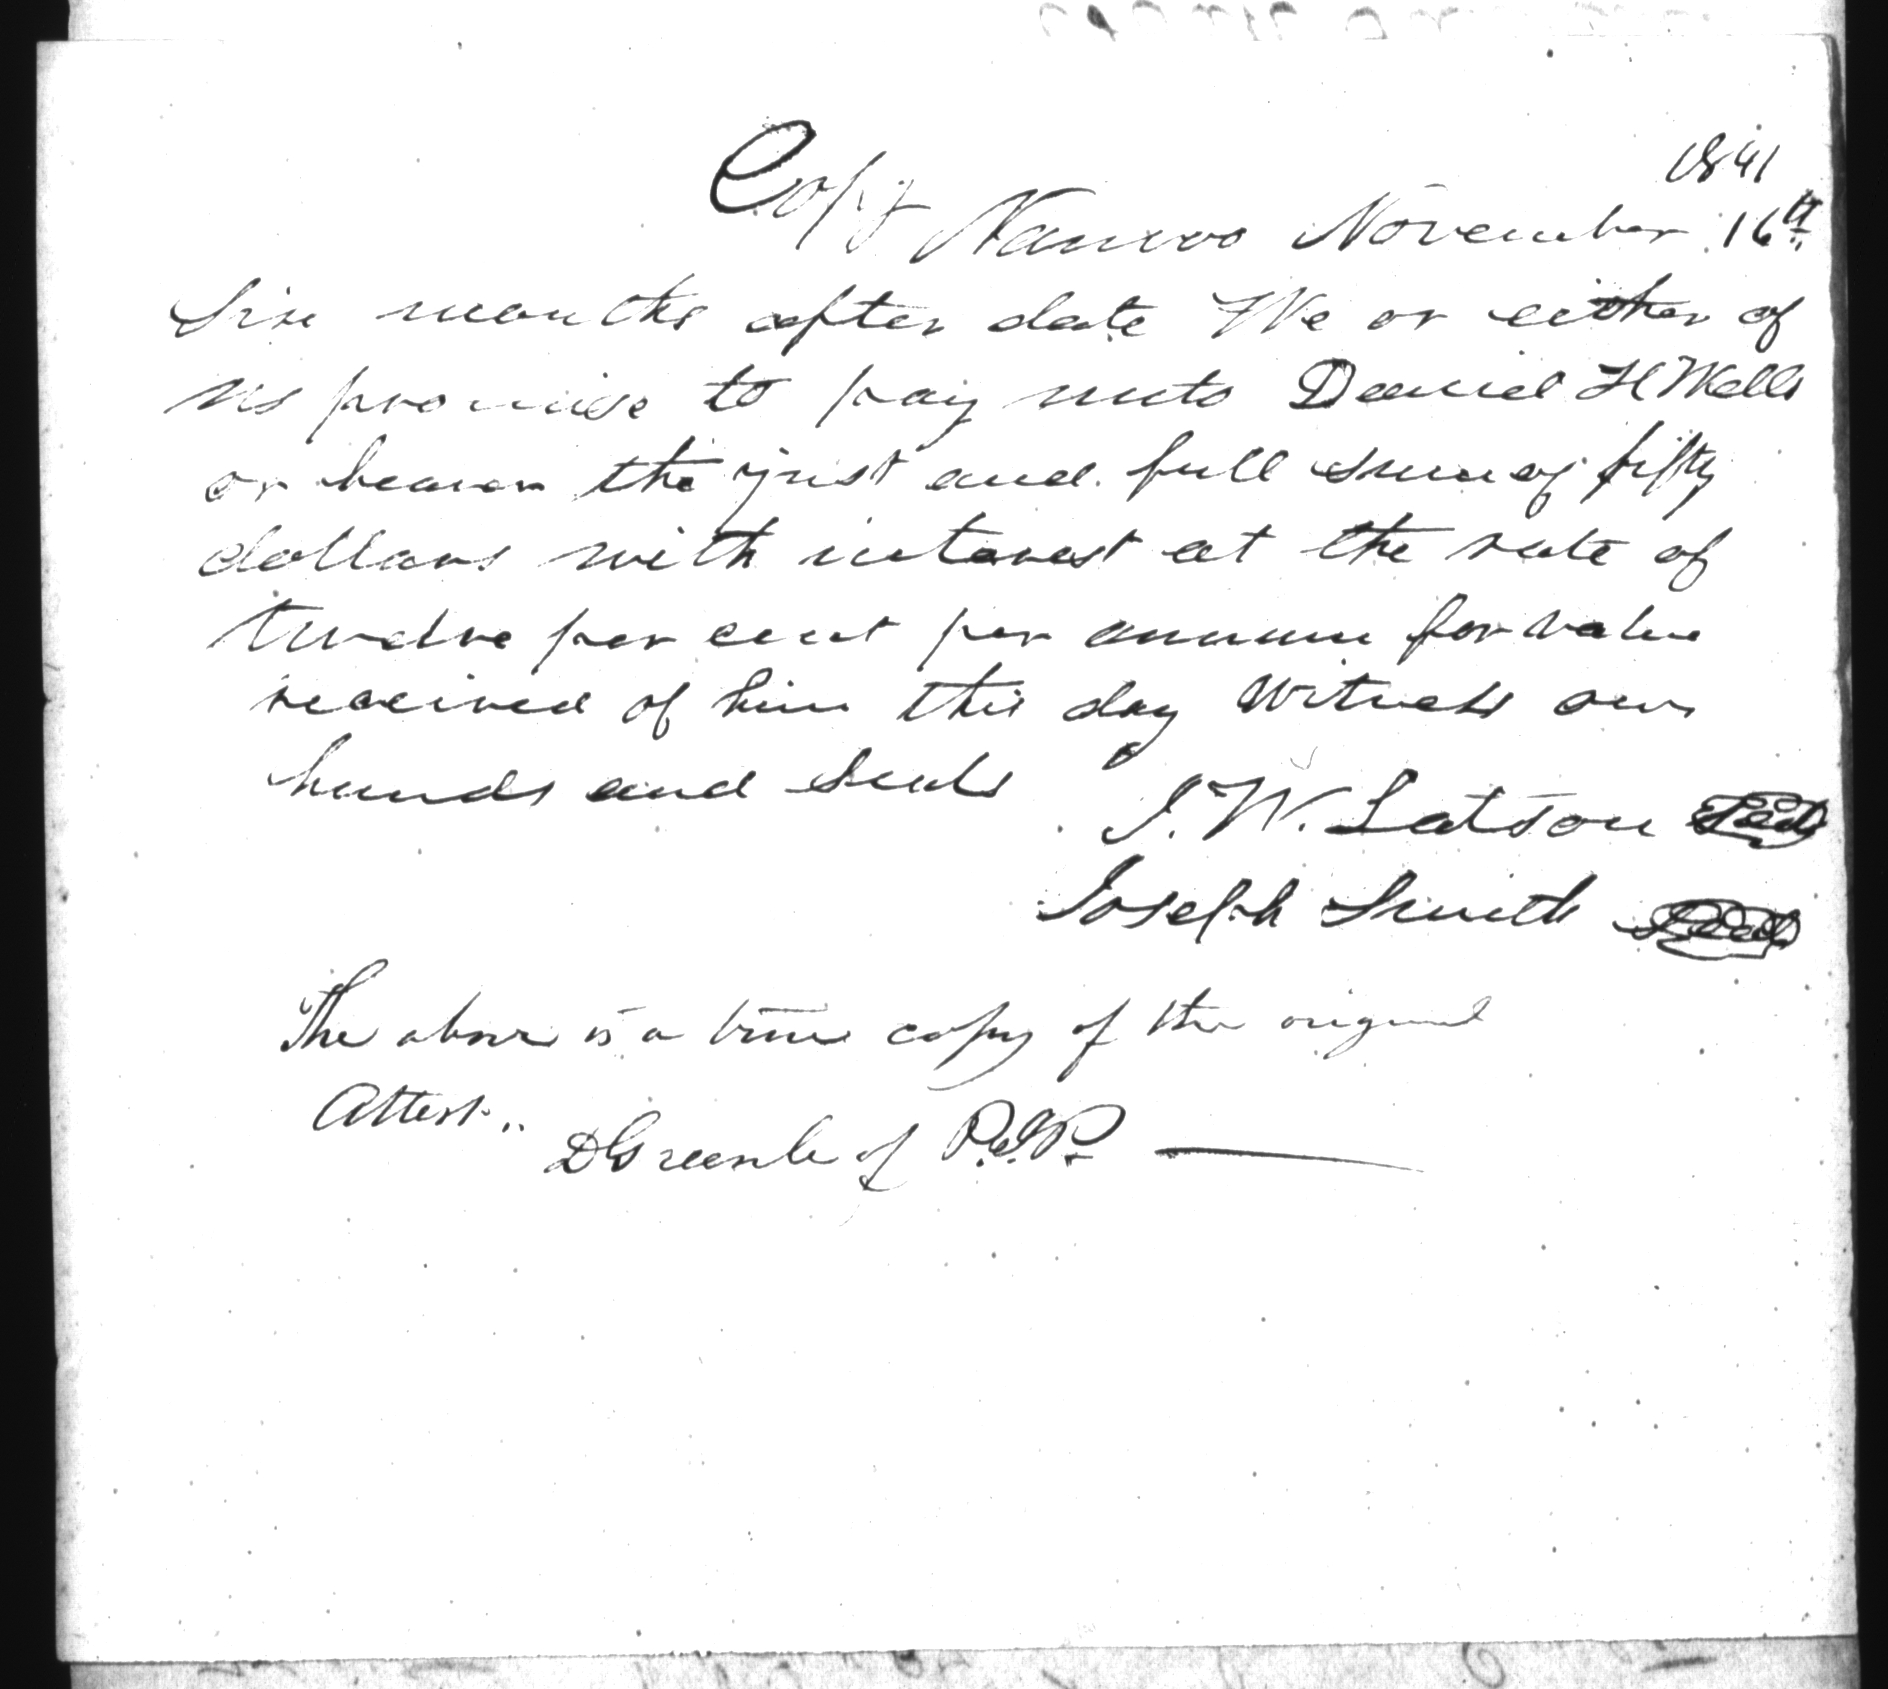 Copy
1841
Nauvoo November 16th
Six months after date We or either of
us promise to pay unto Daniel H Wells
or bearer the just and full sum of fifty
dollars with interest at the rate of
twelve per cent per annum for value
received of him this day Witness our
hands and seals
J. W. Latson Seal
Joseph Smith Seal
The above is a true copy of the original
Attest..
D Greenleaf P. J. P.